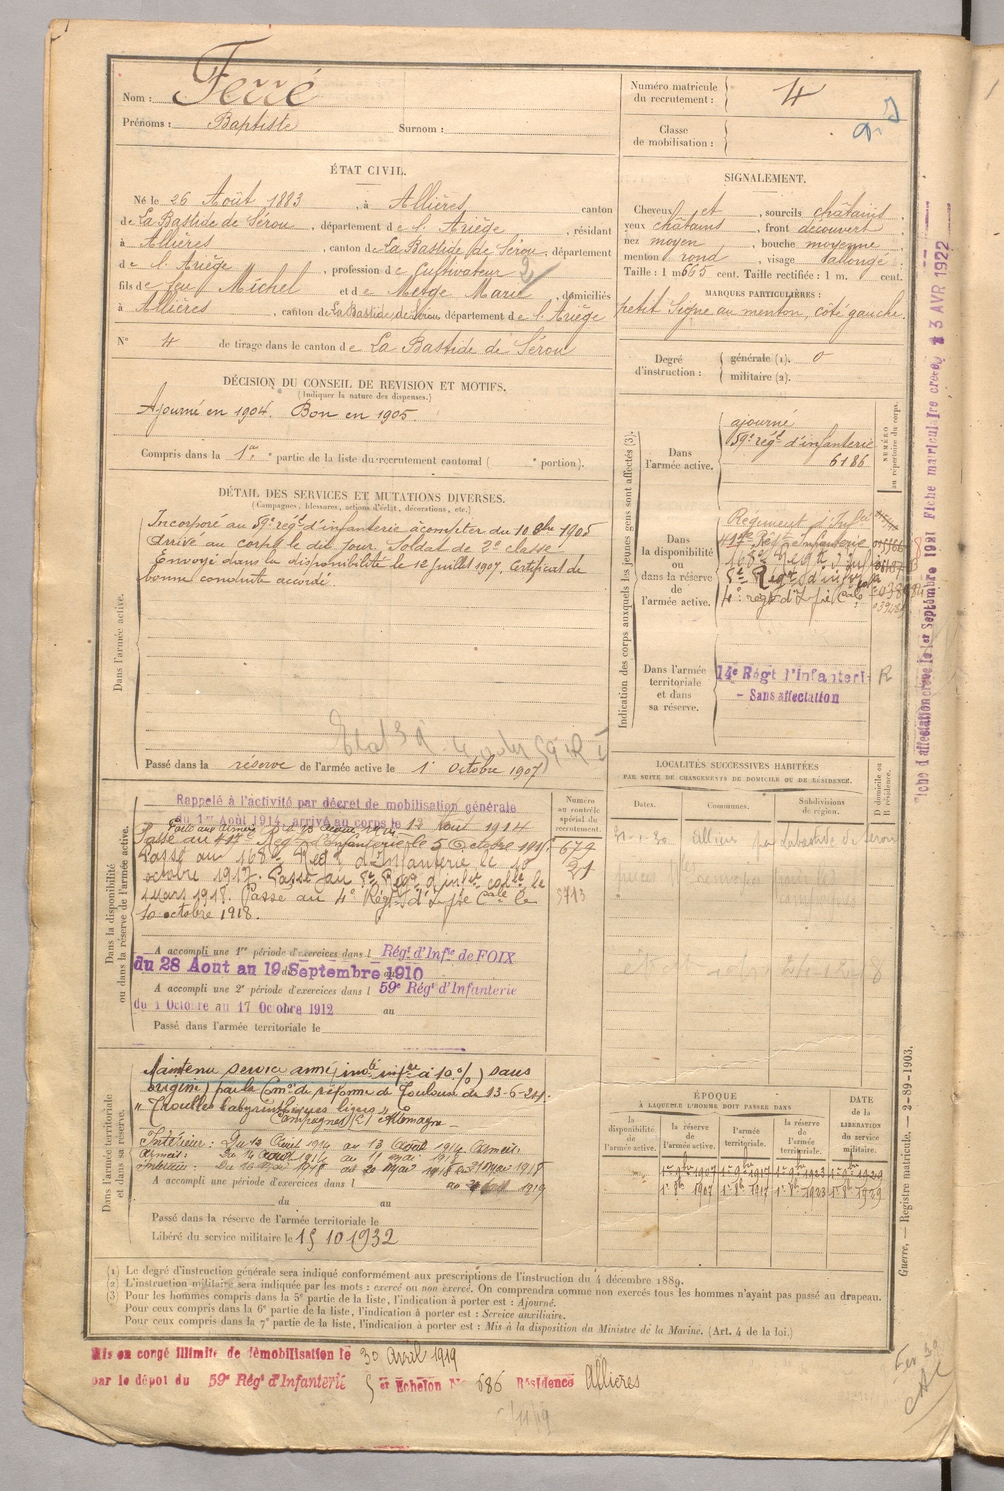 Nom : Ferré
Prénoms : Baptiste Surnom :
Numéro matricule du recrutement : 4
Classe de mobilisation :
ÉTAT CIVIL.
Né le 26 Août 1883, à Allières canton
de La Bastide de Sérou, département de l'Ariège, résidant
à Allières, canton de La Bastide de Sérou, département
de l'Ariège, profession de Cultivateur
fils de feu Michel et de Metge Marie, domiciliés
à Allières, canton de La Bastide de Sérou, département de l'Ariège
N° 4 de tirage dans le canton de La Bastide de Sérou
SIGNALEMENT.
Cheveux et, sourcils châtains.
yeux châtains, front découvert
nez moyen, bouche moyenne
menton rond, visage allongé.
Taille : 1 m 665 cent. Taille rectifiée : 1 m. cent.
MARQUES PARTICULIÈRES :
petit signe au menton, côté gauche.
Degré d'instruction : générale (1). 0
militaire (2).
DÉCISION DU CONSEIL DE REVISION ET MOTIFS.
(Indiquer la nature des dispenses.)
Ajourné en 1904. Bon en 1905.
Compris dans la 1re partie de la liste du recrutement cantonal ( e portion).
DÉTAIL DES SERVICES ET MUTATIONS DIVERSES.
(Campagnes, blessures, actions d'éclat, décorations, etc.)
Dans l'armée active.
Incorporé au 59e régt d'infanterie à compter du 10 8bre 1905
arrivé au corps le dit jour. Soldat de 2e classe.
Envoyé dans la disponibilité le 12 juillet 1907. Certificat de
bonne conduite accordé.
Passé dans la réserve de l'armée active le 1er octobre 1907
Indication des corps auxquels les jeunes gens sont affectés (3).
NUMÉRO au répertoire du corps.
Dans l'armée active.
ajourné
59e régt d'infanterie
6186
Dans la disponibilité ou dans la réserve de l'armée active.
Régiment d'Inf
417e Régt d'infanterie
168e Regt d'inf
5e Regt d'inf
4e regt d'Inf
Dans l'armée territoriale et dans sa réserve.
14e Régt d'Infanteri R
- Sans affectation
Fiche d'affectation créée le 1er Septembre 1921 Fiche matricul 1re créée, 3 AVR 1922
LOCALITÉS SUCCESSIVES HABITÉES
PAR SUITE DE CHANGEMENTS DE DOMICILE OU DE RÉSIDENCE.
Dates. Communes. Subdivisions de région. D domicile ou R résidence.
31-1-30 Allières par Labastide de Serou
Dans la disponibilité ou dans la réserve de l'armée active.
Numéro au contrôle spécial du recrutement.
679
21
5713
Rappelé à l'activité par décret de mobilisation générale
du 1er Août 1914, arrivé au corps le 12 Aout 1914
Passé au 417e Regt d'Infanterie le 5 Octobre 1915.
Passé au 168e Regt d'Infanterie le 18
octobre 1917. Passé au 5e Regt d'infie colle le
1 Mars 1918. Passé au 4e Régt d'Infie Cale le
10 octobre 1918.
A accompli une 1re période d'exercices dans l Régt d'Infie de FOIX
du 28 Aout au 19 Septembre 1910
A accompli une 2e période d'exercices dans l 59e Régt d'Infanterie
du 1 Octobre au 17 Octobre 1912 au
Passé dans l'armée territoriale le
Dans l'armée territoriale et dans sa réserve.
Maintenu service armé (invté infre à 10 %) sans
origine par la Comon de réforme de Toulouse du 13-6-24.
"Troubles labyrinthiques légers"
Campagnes c/ Allemagne
Intérieur : Du 12 Aout 1914 au 13 Août 1914 Armées.
Armées : Du 14 Aout 1914 au 11 mai 1918
A accompli une période d'exercices dans l
du au
Passé dans la réserve de l'armée territoriale le
Libéré du service militaire le 15 10 1932
ÉPOQUE
À LAQUELLE L'HOMME DOIT PASSER DANS
la disponibilité de l'armée active.
la réserve de l'armée active.
l'armée territoriale.
la réserve de l'armée territoriale.
DATE de la LIBÉRATION du service militaire.
1er 9bre 1907 1er 9bre 1917 1er 9bre 1923 1er 9bre 1929
1er 8bre 1907 1er 8bre 1917 1er 8bre 1923 1er 8bre 1929
Guerre. — Registre matricule. — 2-89-1903.
(1) Le degré d'instruction générale sera indiqué conformément aux prescriptions de l'instruction du 4 décembre 1889.
(2) L'instruction militaire sera indiquée par les mots : exercé ou non exercé. On comprendra comme non exercés tous les hommes n'ayant pas passé au drapeau.
(3) Pour les hommes compris dans la 5e partie de la liste, l'indication à porter est : Ajourné.
Pour ceux compris dans la 6e partie de la liste, l'indication à porter est : Service auxiliaire.
Pour ceux compris dans la 7e partie de la liste, l'indication à porter est : Mis à la disposition du Ministre de la Marine. (Art. 4 de la loi.)
Mis en congé illimité de démobilisation le 30 avril 1919
par le dépot du 59e Régt d'Infanterie 5 er Echelon N° 686 Résidence Allieres